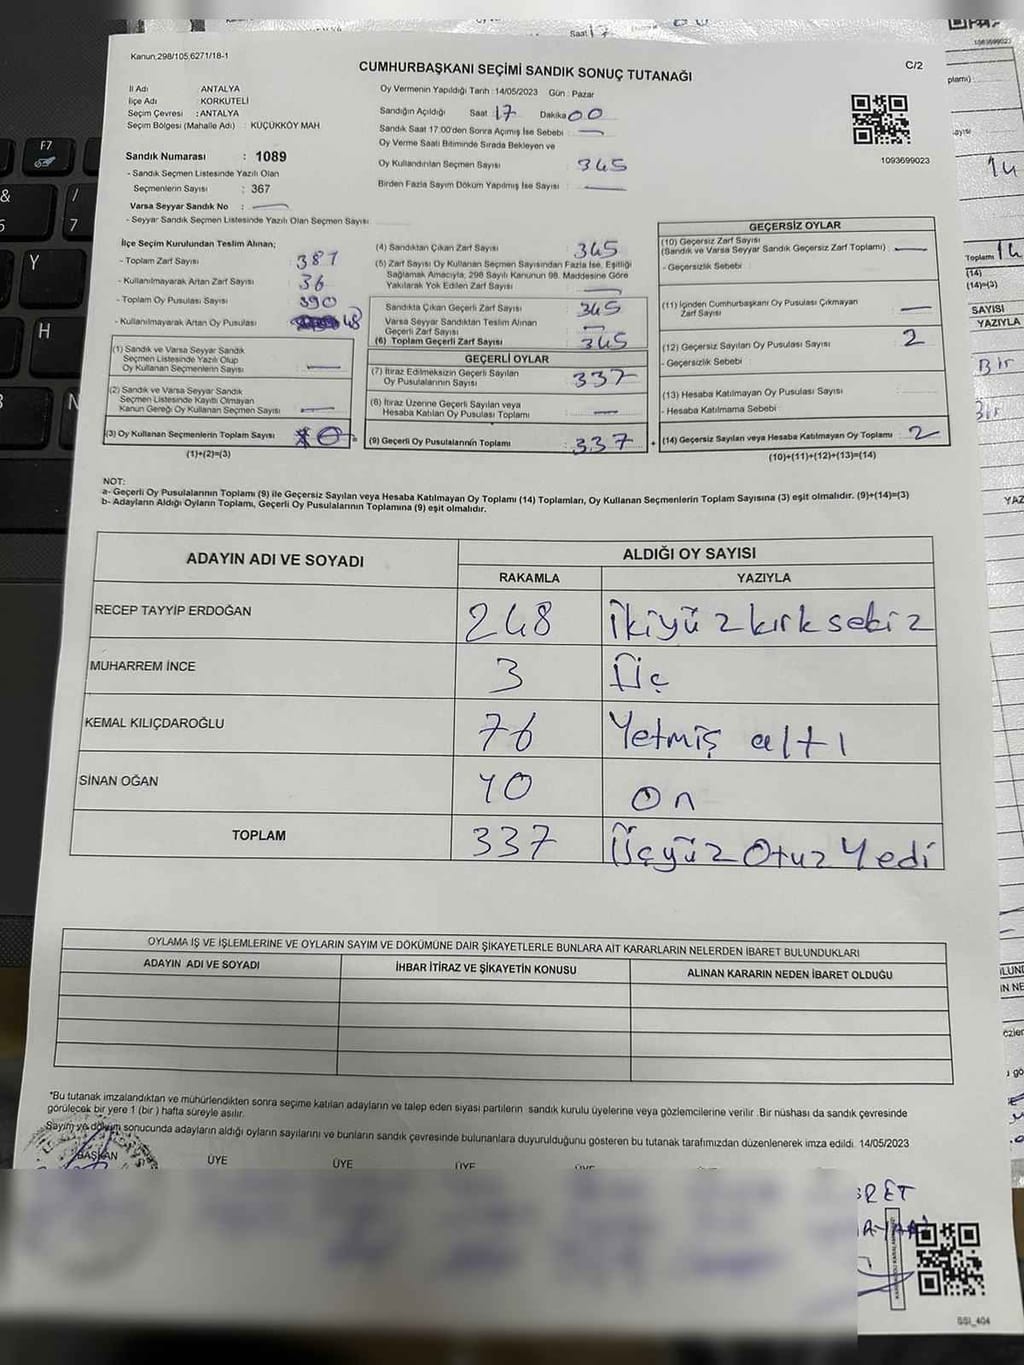 Kanun,298/105,6271/18-1
C/2
CUMHURBAŞKANI SEÇİMİ SANDIK SONUÇ TUTANAĞI
İl Adı ANTALYA
İlçe Adı KORKUTELİ
Seçim Çevresi : ANTALYA
Seçim Bölgesi (Mahalle Adı) : KÜÇÜKKÖY MAH
Sandık Numarası : 1089
- Sandık Seçmen Listesinde Yazılı Olan
Seçmenlerin Sayısı : 367
Varsa Seyyar Sandık No : —
- Seyyar Sandık Seçmen Listesinde Yazılı Olan Seçmen Sayısı
Oy Vermenin Yapıldığı Tarih : 14/05/2023 Gün : Pazar
Sandığın Açıldığı Saat 17 Dakika 00
Sandık Saat 17:00'den Sonra Açımış İse Sebebi —
Oy Verme Saati Bitiminde Sırada Bekleyen ve
Oy Kullandırılan Seçmen Sayısı : 345
Birden Fazla Sayım Döküm Yapılmış İse Sayısı : —
1093699023
İlçe Seçim Kurulundan Teslim Alınan;
- Toplam Zarf Sayısı : 381
- Kullanılmayarak Artan Zarf Sayısı : 36
- Toplam Oy Pusulası Sayısı : 390
- Kullanılmayarak Artan Oy Pusulası : 48
(1) Sandık ve Varsa Seyyar Sandık
Seçmen Listesinde Yazılı Olup
Oy Kullanan Seçmenlerin Sayısı : —
(2) Sandık ve Varsa Seyyar Sandık
Seçmen Listesinde Kayıtlı Olmayan
Kanun Gereği Oy Kullanan Seçmen Sayısı : —
(3) Oy Kullanan Seçmenlerin Toplam Sayısı 0
(1)+(2)=(3)
(4) Sandıktan Çıkan Zarf Sayısı : 345
(5) Zarf Sayısı Oy Kullanan Seçmen Sayısından Fazla İse, Eşitliği
Sağlamak Amacıyla, 298 Sayılı Kanunun 98. Maddesine Göre
Yakılarak Yok Edilen Zarf Sayısı : —
Sandıkta Çıkan Geçerli Zarf Sayısı : 345
Varsa Seyyar Sandıktan Teslim Alınan
Geçerli Zarf Sayısı : —
(6) Toplam Geçerli Zarf Sayısı : 345
GEÇERLİ OYLAR
(7) İtiraz Edilmeksizin Geçerli Sayılan
Oy Pusulalarının Sayısı : 337
(8) İtiraz Üzerine Geçerli Sayılan veya
Hesaba Katılan Oy Pusulası Toplamı : —
(9) Geçerli Oy Pusulalarının Toplamı : 337
GEÇERSİZ OYLAR
(10) Geçersiz Zarf Sayısı
(Sandık ve Varsa Seyyar Sandık Geçersiz Zarf Toplamı) : —
- Geçersizlik Sebebi :
(11) İçinden Cumhurbaşkanı Oy Pusulası Çıkmayan
Zarf Sayısı : —
(12) Geçersiz Sayılan Oy Pusulası Sayısı : 2
- Geçersizlik Sebebi :
(13) Hesaba Katılmayan Oy Pusulası Sayısı :
- Hesaba Katılmama Sebebi :
(14) Geçersiz Sayılan veya Hesaba Katılmayan Oy Toplamı : 2
(10)+(11)+(12)+(13)=(14)
NOT:
a- Geçerli Oy Pusulalarının Toplamı (9) ile Geçersiz Sayılan veya Hesaba Katılmayan Oy Toplamı (14) Toplamları, Oy Kullanan Seçmenlerin Toplam Sayısına (3) eşit olmalıdır. (9)+(14)=(3)
b- Adayların Aldığı Oyların Toplamı, Geçerli Oy Pusulalarının Toplamına (9) eşit olmalıdır.
ADAYIN ADI VE SOYADI ALDIĞI OY SAYISI
RAKAMLA YAZIYLA
RECEP TAYYİP ERDOĞAN 248 İkiyüzkırksekiz
MUHARREM İNCE 3 Üç
KEMAL KILIÇDAROĞLU 76 Yetmiş altı
SİNAN OĞAN 10 On
TOPLAM 337 Üçyüz Otuz Yedi
OYLAMA İŞ VE İŞLEMLERİNE VE OYLARIN SAYIM VE DÖKÜMÜNE DAİR ŞİKAYETLERLE BUNLARA AİT KARARLARIN NELERDEN İBARET BULUNDUKLARI
ADAYIN ADI VE SOYADI İHBAR İTİRAZ VE ŞİKAYETİN KONUSU ALINAN KARARIN NEDEN İBARET OLDUĞU
*Bu tutanak imzalandıktan ve mühürlendikten sonra seçime katılan adayların ve talep eden siyasi partilerin sandık kurulu üyelerine veya gözlemcilerine verilir. Bir nüshası da sandık çevresinde
görülecek bir yere 1 (bir) hafta süreyle asılır.
Sayım ve döküm sonucunda adayların aldığı oyların sayılarını ve bunların sandık çevresinde bulunanlara duyurulduğunu gösteren bu tutanak tarafımızdan düzenlenerek imza edildi. 14/05/2023
BAŞKAN ÜYE ÜYE ÜYE
SSI_404
F7
Y
H
N
7
SAYISI
YAZIYLA
Bir
Bir
(14)
(14)=(3)